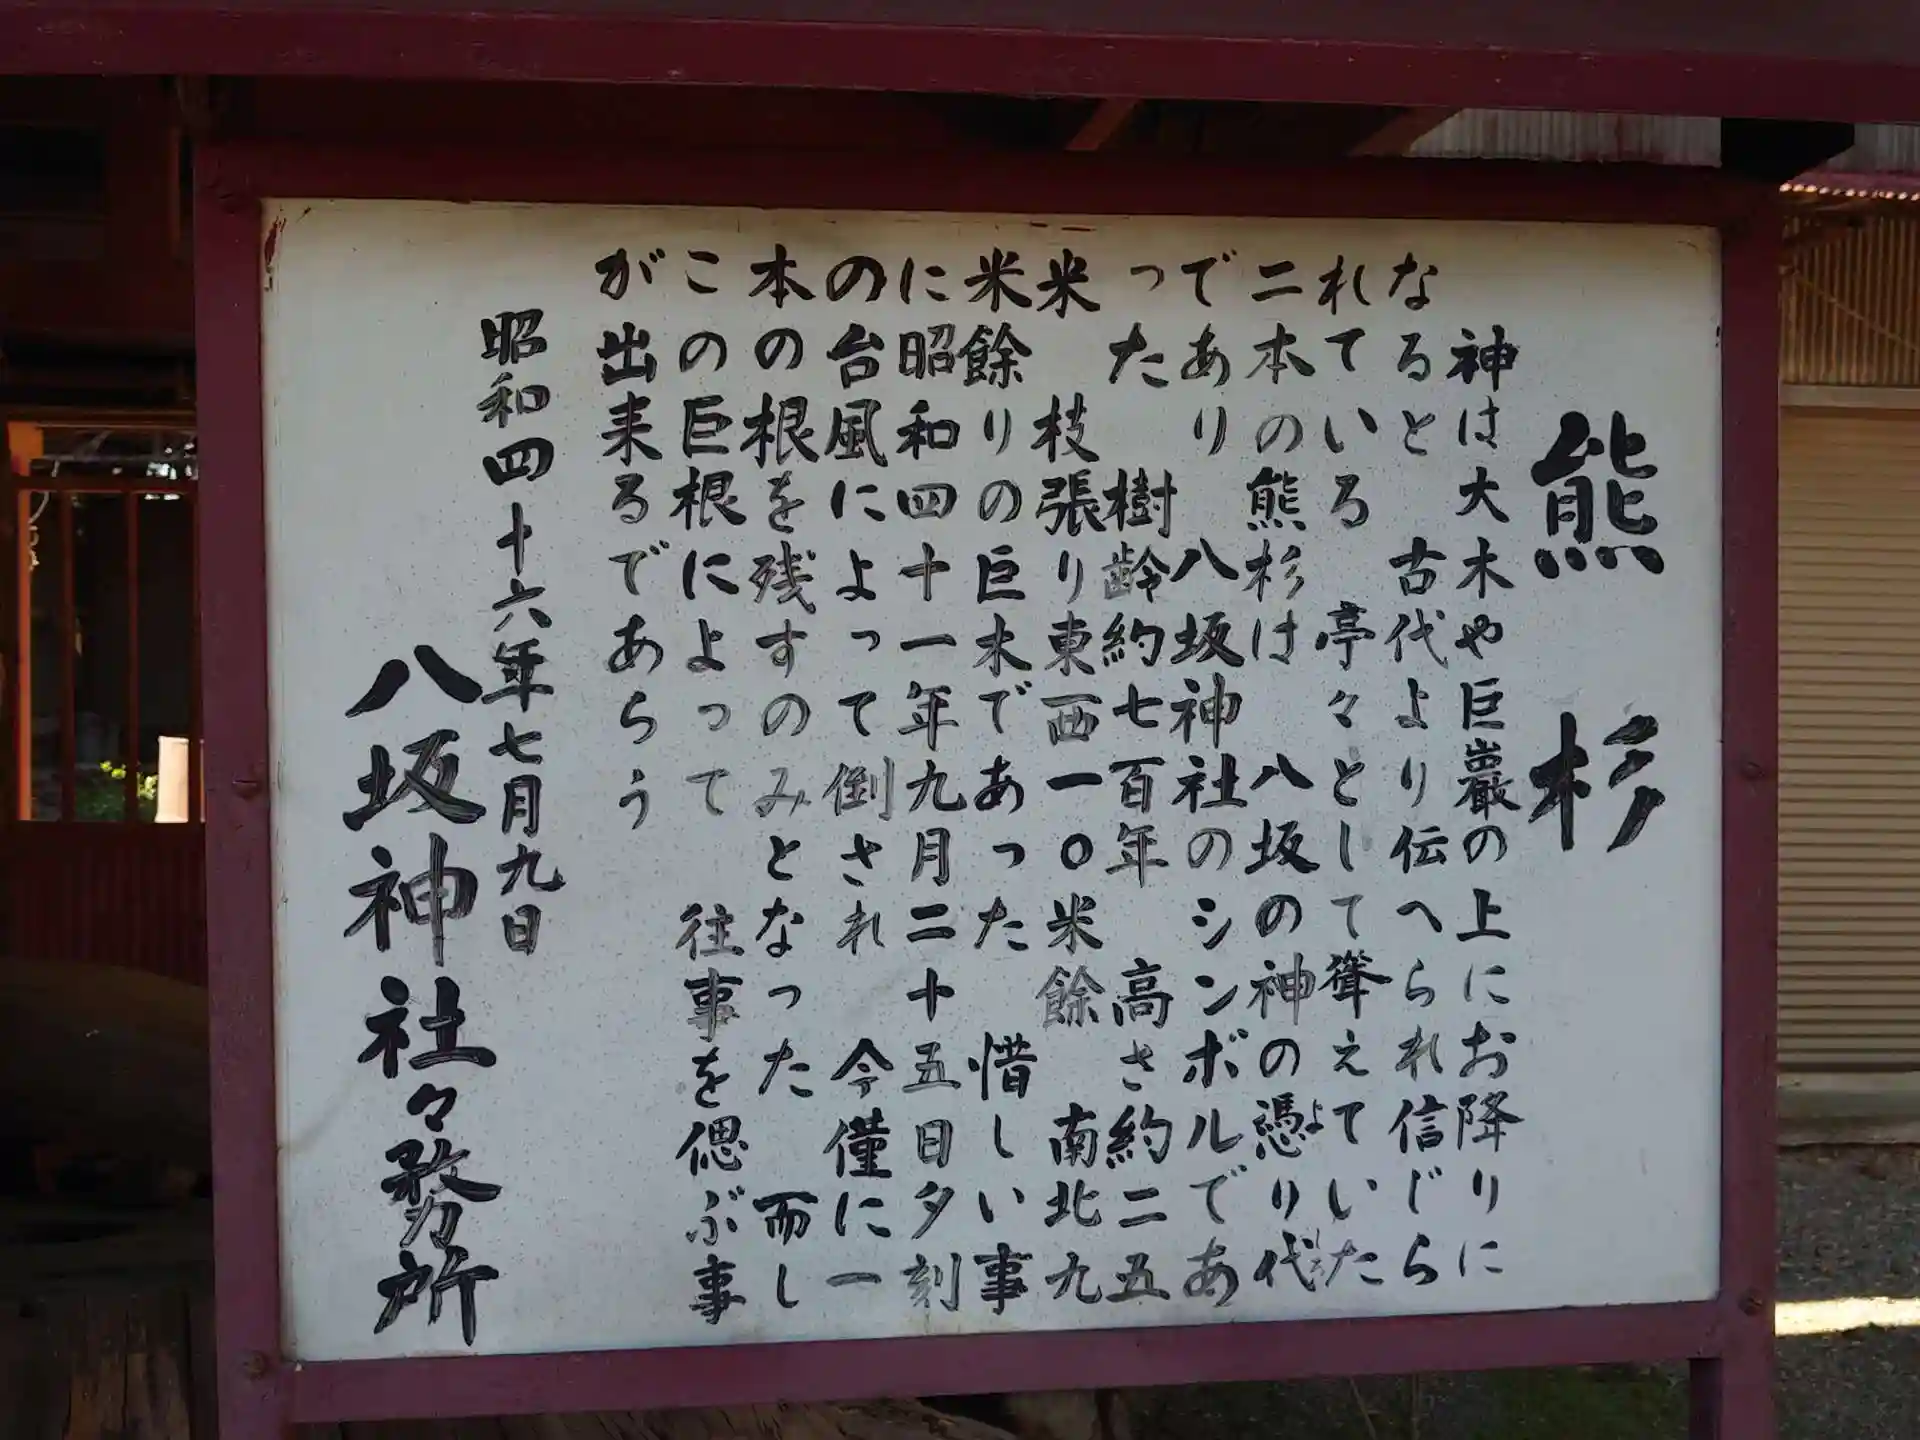 熊杉
神は大木や巨巌の上にお降りに
なると 古代より伝へられ信じら
れている 亭々として聳えていた
二本の熊杉は 八坂の神の憑り代
よ しろ
であり 八坂神社のシンボルであ
った 樹齢約七百年 高さ約二五
米 枝張り東西一〇米餘 南北九
米餘りの巨木であった 惜しい事
に昭和四十一年九月二十五日夕刻
の台風によって倒され 今僅に一
本の根を残すのみとなった 而し
この巨根によって 往事を偲ぶ事
が出来るであらう
昭和四十六年七月九日
八坂神社々務所